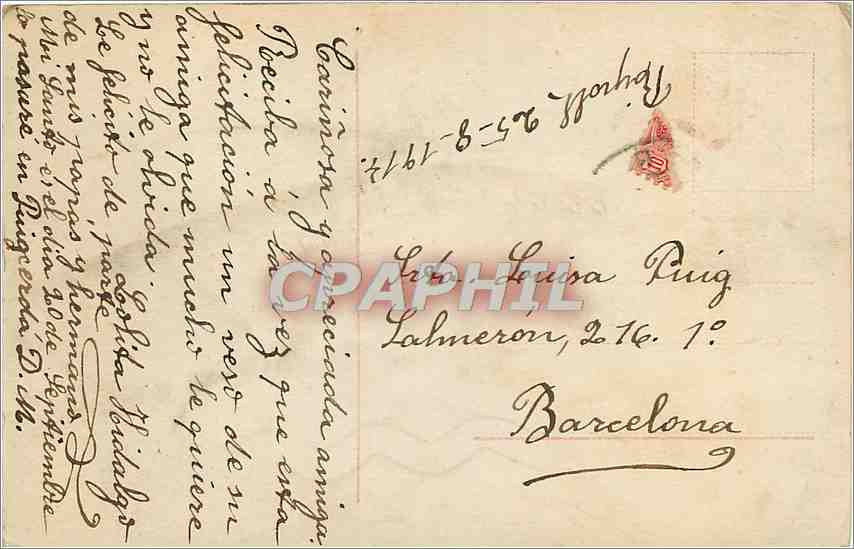 Cariñosa y apreciada amiga.
Reciba á la vez que esta
felicitación un veso de su
amiga que mucho le quiere
y no le olvida.
Lolita Hidalgo
Le felicito de parte
de mis papas y hermano
Mi Santo es el dia 20 de Septiembre
lo pasaré en Puigcerdá D. M.
25-8-1917.
Srta. Louisa Puig
Salmerón, 216. 1º
Barcelona
CPAPHIL